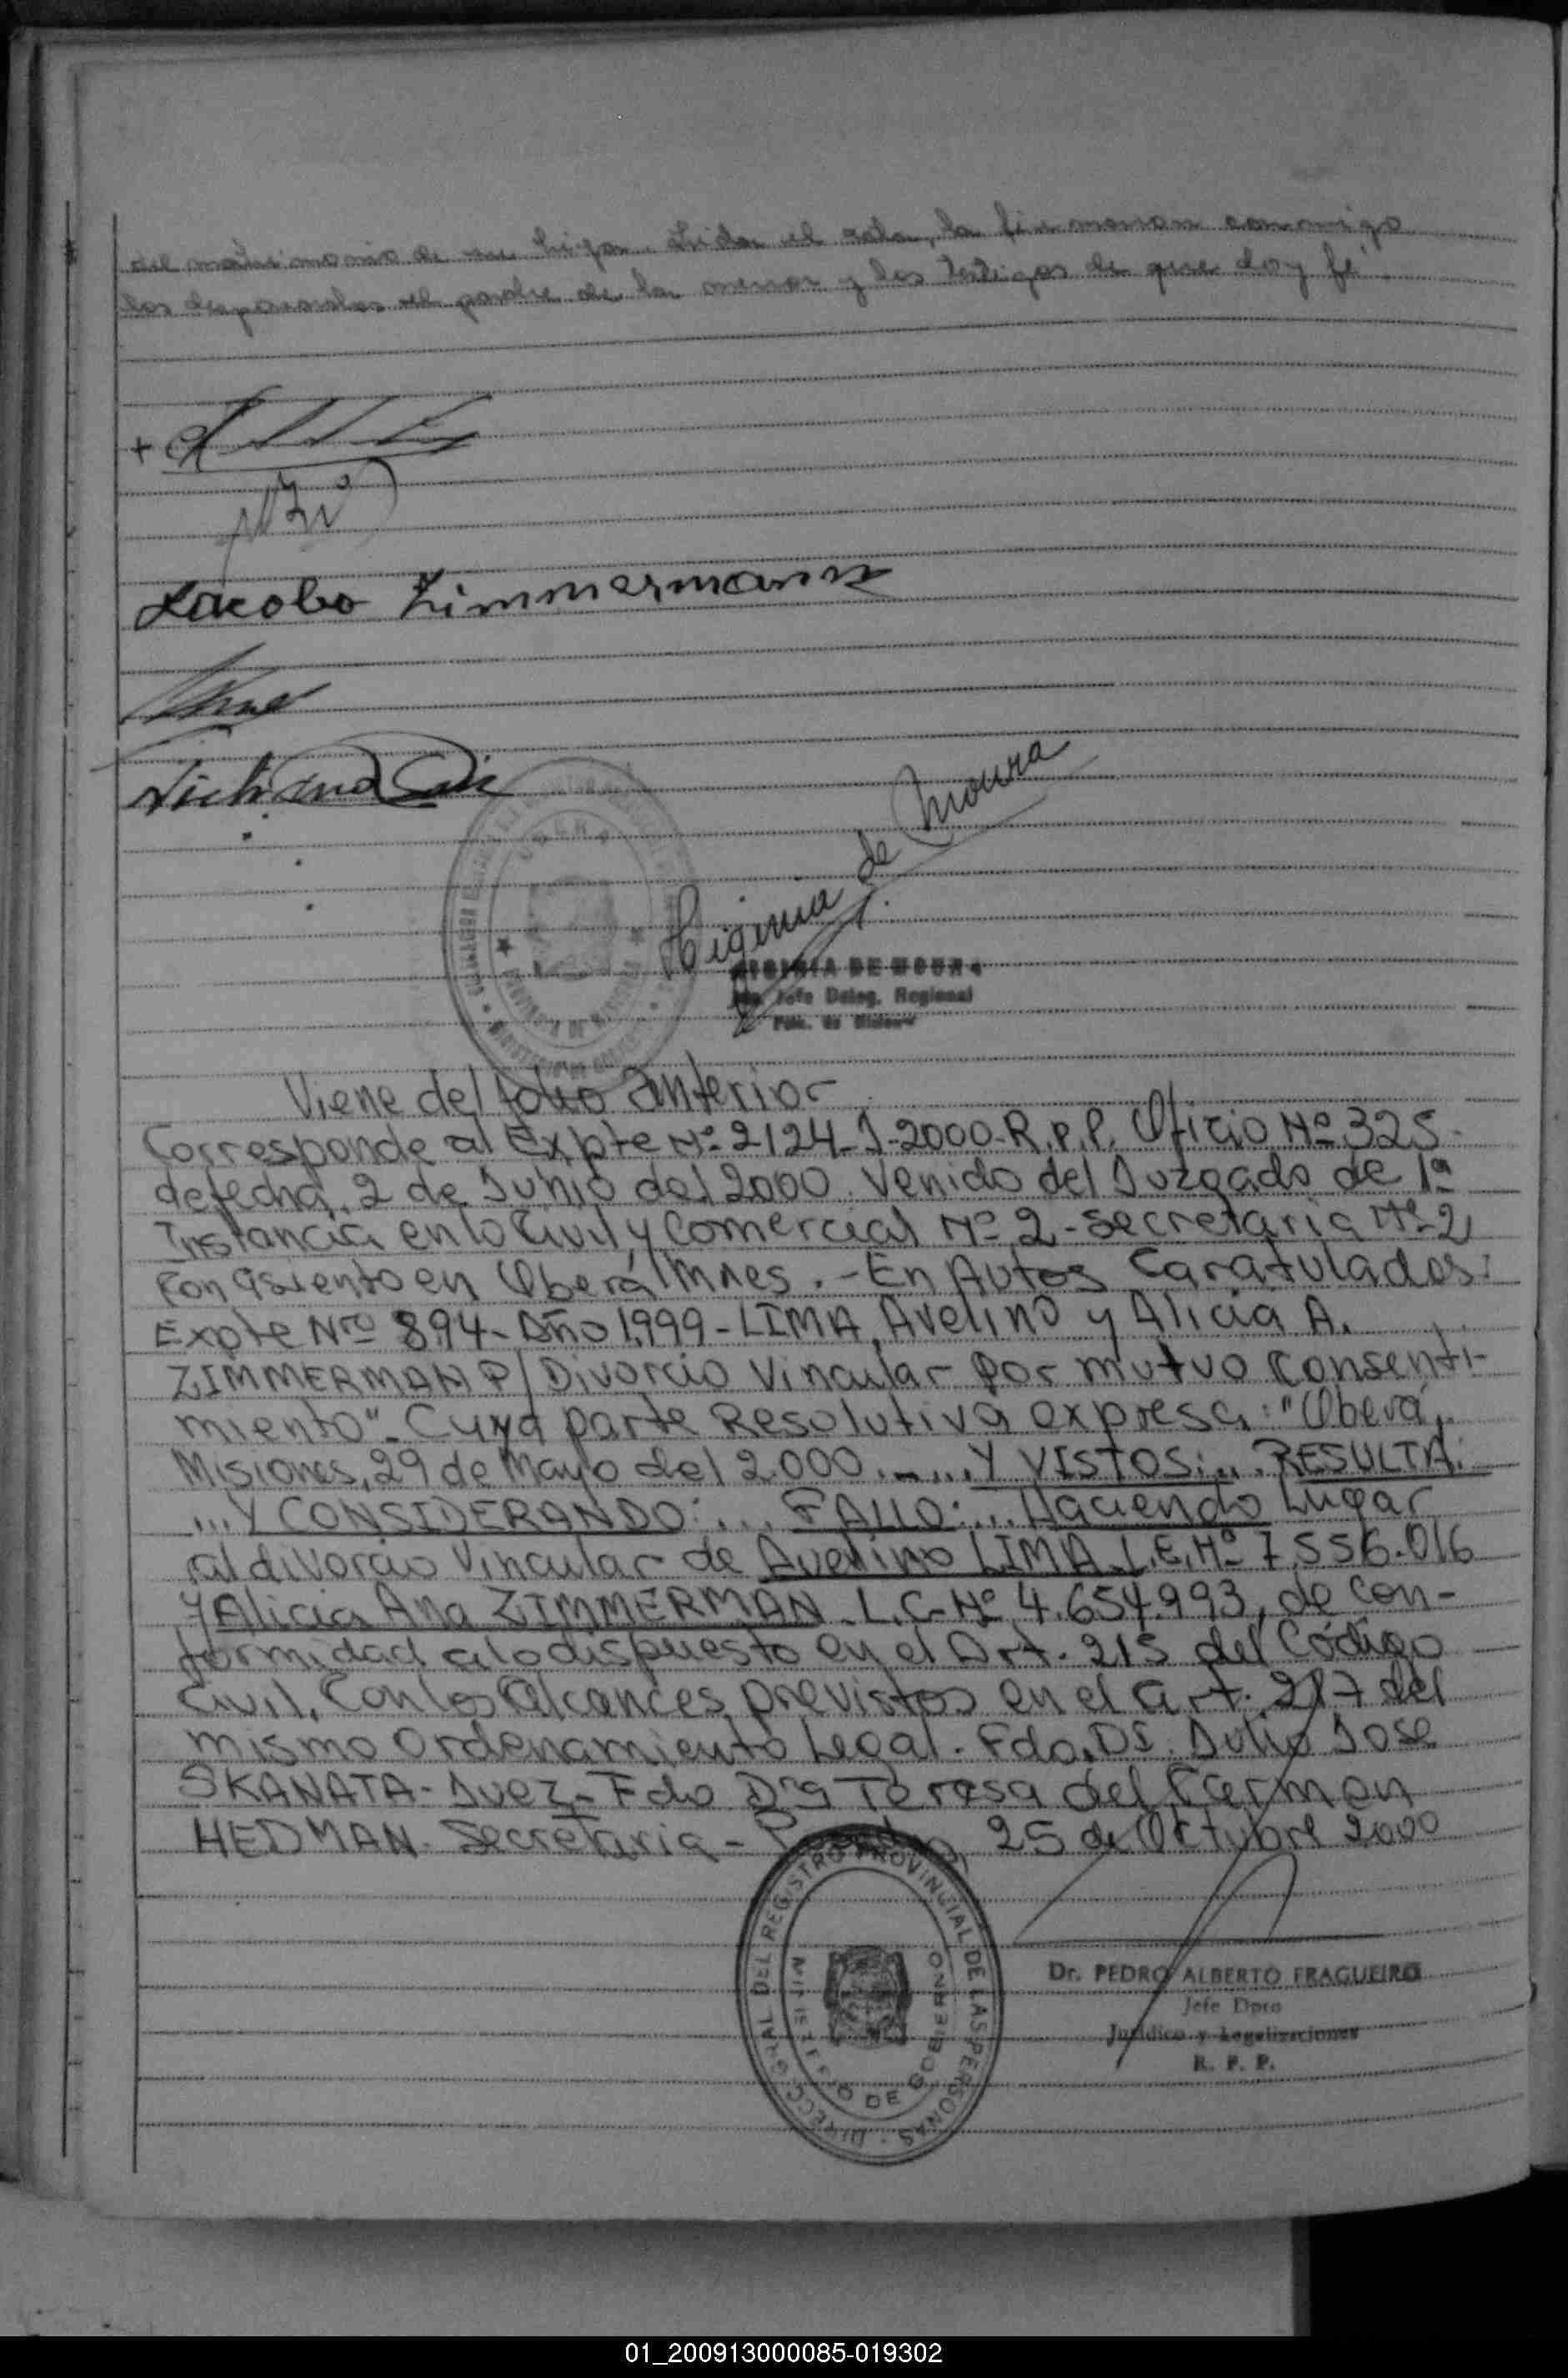 del matrimonio de su hija. Leida el acta, la firmaron conmigo
los desposados el padre de la menor y los testigos de que doy fé
Jacobo Zimmermann
Higinia de Moura
HIGINIA DE MOURA
Jefe Deleg. Regional
Viene del folio anterior
Corresponde al Expte Nº 2124-J-2000-R.P.P. Oficio Nº 325
defecha, 2 de Junio del 2000. Venido del Juzgado de 1ª
Instancia en lo Civil y Comercial Nº 2 - Secretaria Nº 2
con asiento en Oberá Mnes. - En Autos Caratulados:
Expte Nro 894 - Año 1999 - LIMA, Avelino y Alicia A.
ZIMMERMAN P/ Divorcio Vincular por mutuo consenti-
miento". Cuya parte Resolutiva expresa: "Oberá,
Misiones, 29 de Mayo del 2.000. - ... Y VISTOS: ... RESULTA:
... Y CONSIDERANDO: ... FALLO: ... Haciendo Lugar
al divorcio Vincular de Avelino LIMA - L.E. Nº 7.556.016
y Alicia Ana ZIMMERMAN - L.C. Nº 4.654.993, de con-
formidad a lo dispuesto en el Art. 215 del Código
Civil, Con los alcances previstos en el art. 217 del
mismo Ordenamiento Legal. Fdo. Dr. Julio Jose
SKANATA - Juez - Fdo Dra Teresa del Carmen
HEDMAN. Secretaria - Posadas, 25 de Octubre 2000
DIRECC. GRAL DEL REGISTRO PROVINCIAL DE LAS PERSONAS
MINISTERIO DE GOBIERNO
Dr. PEDRO ALBERTO FRAGUEIRO
Jefe Dpto
Jurídico y Legalizaciones
R. P. P.
01_200913000085-019302